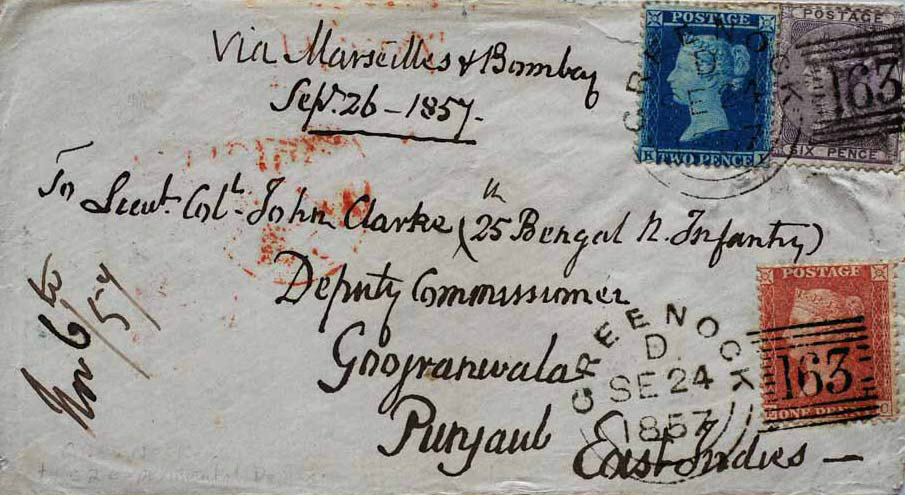 Via Marseilles & Bombay
Sept. 26 - 1857.
To Lieut. Colt. John Clarke (25th Bengal N. Infantry)
Deputy Commissioner
Googranwala
Punjaub
East Indies —
Nov 6th/57
POSTAGE
TWO PENCE
POSTAGE
SIX PENCE
163
GREENOCK
D
SE 24
POSTAGE
ONE PENNY
163
GREENOCK
D.
SE 24
1857